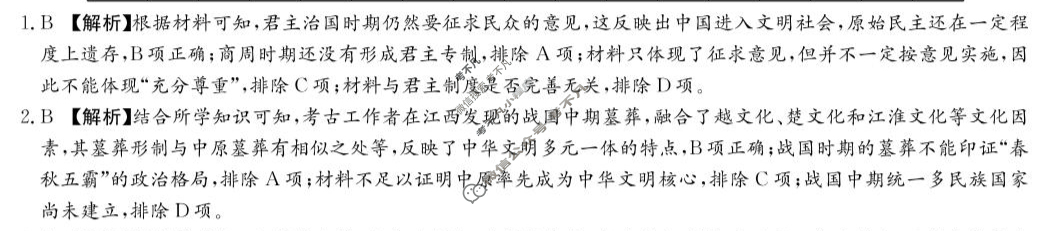 1. B 【解析】根据材料可知,君主治国时期仍然要征求民众的意见,这反映出中国进入文明社会,原始民主还在一定程
度上遗存,B项正确;商周时期还没有形成君主专制,排除 A 项;材料只体现了征求意见,但并不一定按意见实施,因
此不能体现“充分尊重”,排除 C 项;材料与君主制度是否完善无关,排除 D 项。
2. B 【解析】结合所学知识可知,考古工作者在江西发现的战国中期墓葬,融合了越文化、楚文化和江淮文化等文化因
素,其墓葬形制与中原墓葬有相似之处等,反映了中华文明多元一体的特点,B项正确;战国时期的墓葬不能印证“春
秋五霸”的政治格局,排除 A 项;材料不足以证明中原率先成为中华文明核心,排除 C 项;战国中期统一多民族国家
尚未建立,排除 D 项。